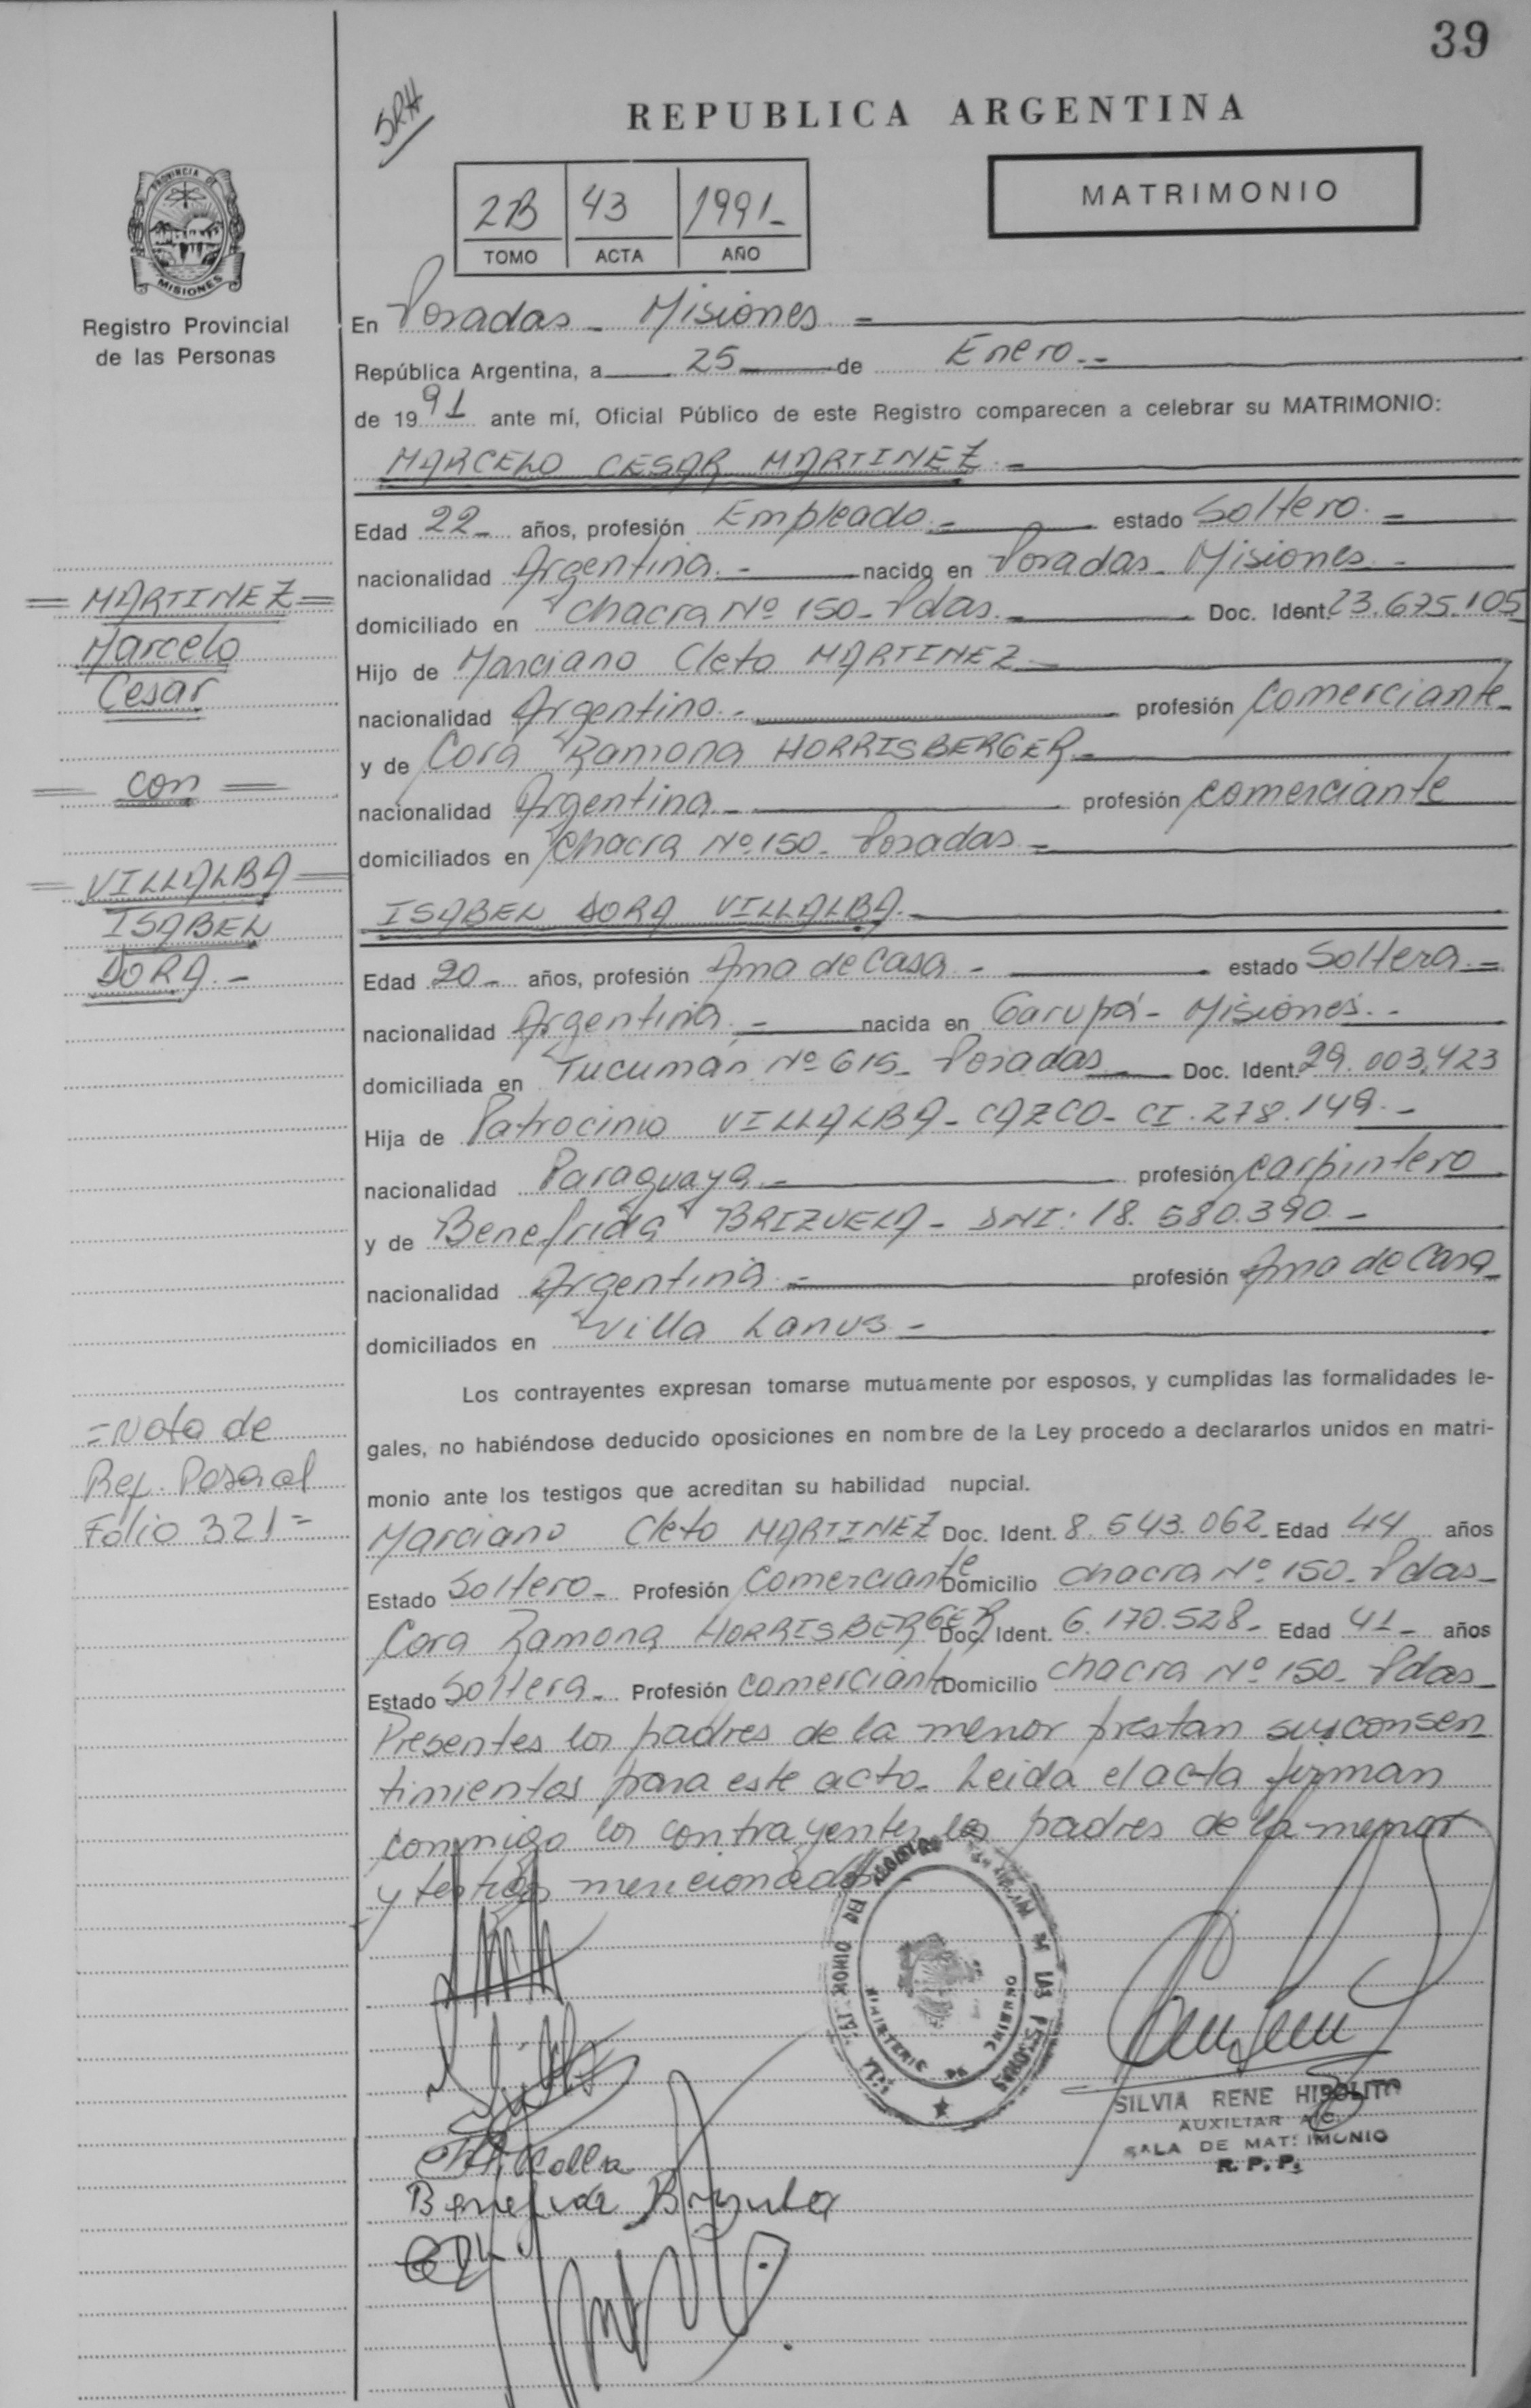 39
SRH
REPUBLICA ARGENTINA
PROVINCIA DE
MISIONES
Registro Provincial
de las Personas
2B 43 1991_
TOMO ACTA AÑO
MATRIMONIO
En Posadas - Misiones =
República Argentina, a 25 de Enero.-
de 1991 ante mí, Oficial Público de este Registro comparecen a celebrar su MATRIMONIO:
MARCELO CESAR MARTINEZ.-
Edad 22- años, profesión Empleado.- estado Soltero.-
nacionalidad Argentina.- nacido en Posadas - Misiones -
domiciliado en Chacra Nº 150 - Pdas.- Doc. Ident. 23.675.105
Hijo de Marciano Cleto MARTINEZ -
nacionalidad Argentino.- profesión Comerciante
y de Cora Ramona HORRISBERGER -
nacionalidad Argentina - profesión comerciante
domiciliados en Chacra Nº 150 - Posadas -
ISABEL DORA VILLALBA.-
Edad 20- años, profesión Ama de Casa - estado Soltera -
nacionalidad Argentina.- nacida en Garupá - Misiones.-
domiciliada en Tucumán Nº 615 - Posadas - Doc. Ident. 29.003.423
Hija de Patrocinio VILLALBA - CAZCO - CI. 278.149.-
nacionalidad Paraguaya - profesión carpintero
y de Benefrida BRIZUELA - DNI: 18.580.390.-
nacionalidad Argentina - profesión Ama de Casa
domiciliados en Villa Lanus -
Los contrayentes expresan tomarse mutuamente por esposos, y cumplidas las formalidades le-
gales, no habiéndose deducido oposiciones en nombre de la Ley procedo a declararlos unidos en matri-
monio ante los testigos que acreditan su habilidad nupcial.
Marciano Cleto MARTINEZ Doc. Ident. 8.543.062 - Edad 44 años
Estado Soltero - Profesión Comerciante Domicilio Chacra Nº 150 - Pdas -
Cora Ramona HORRISBERGER Doc. Ident. 6.170.528 - Edad 41 - años
Estado Soltera - Profesión comerciante Domicilio Chacra Nº 150 - Pdas -
Presentes los padres de la menor prestan sus consen
timientos para este acto - Leida el acta firman
conmigo los contrayentes los padres de la menor
y testigos mencionados
= MARTINEZ =
Marcelo
Cesar
= con =
= VILLALBA =
ISABEL
DORA.-
= Nota de
Ref.
Folio 321 =
DEL REGISTRO DE LAS PERSONAS
MINISTERIO DE GOBIERNO
SILVIA RENE HIPOLITO
AUXILIAR A/C.
SALA DE MATRIMONIO
R.P.P.
Benefrida Brizuela